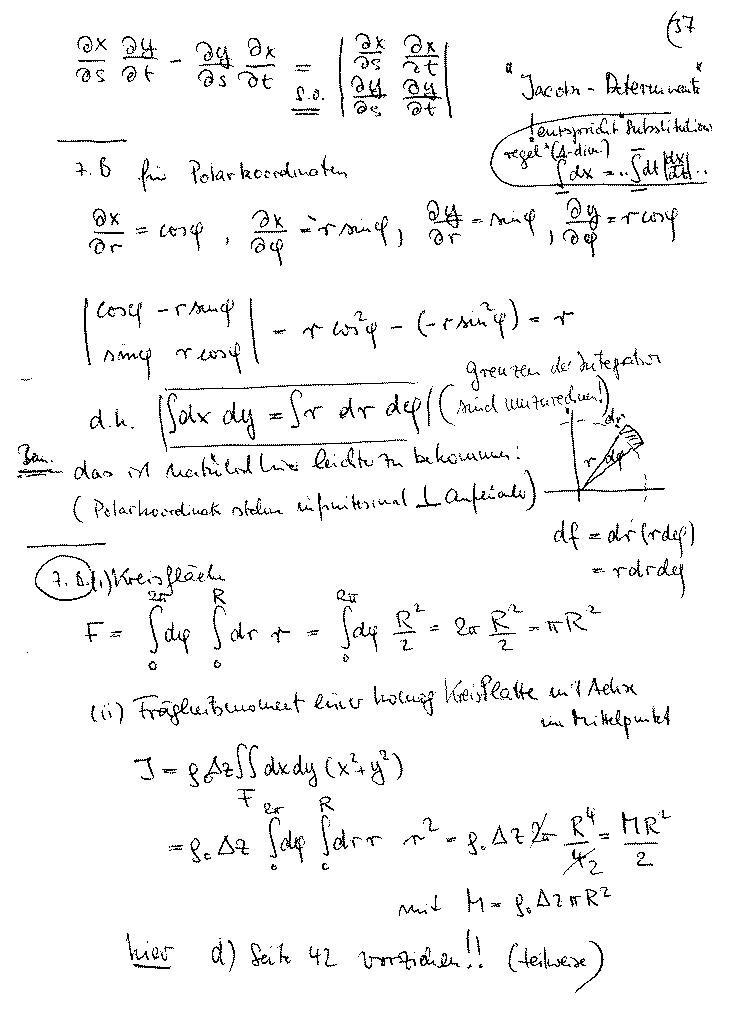 (37
∂x/∂s ∂y/∂t - ∂y/∂s ∂x/∂t = | ∂x/∂s ∂x/∂t |
s.o. | ∂y/∂s ∂y/∂t |
"Jacobi-Determinante"
! entspricht "Substitutions
regel" (1-dim.)
∫dx = ..∫dt |dx/dt| ..
z.B für Polarkoordinaten
∂x/∂r = cosφ , ∂x/∂φ = -r sinφ, ∂y/∂r = sinφ, ∂y/∂φ = r cosφ
| cosφ -r sinφ |
| sinφ r cosφ | = r cos²φ - (-r sin²φ) = r
d.h. |∫dx dy = ∫r dr dφ| (Grenzen der Integration
sind umzurechnen!)
Bem. das ist natürlich hier leichter zu bekommen:
(Polarkoordinate stehen infinitesimal ⊥ aufeinander)
dr
r dφ
df = dr (r dφ)
= r dr dφ
z.B. (i) Kreisfläche
F = ∫₀^2π dφ ∫₀^R dr r = ∫₀^2π dφ R²/2 = 2π R²/2 = πR²
(ii) Trägheitsmoment einer homog Kreisplatte mit Achse
im Mittelpunkt
J = ρ₀Δz ∫∫_F dx dy (x²+y²)
= ρ₀ Δz ∫₀^2π dφ ∫₀^R dr r r² = ρ₀ Δz 2π R⁴/4 2 = MR²/2
mit M = ρ₀ Δz πR²
hier d) Seite 42 vorziehen!! (teilweise)